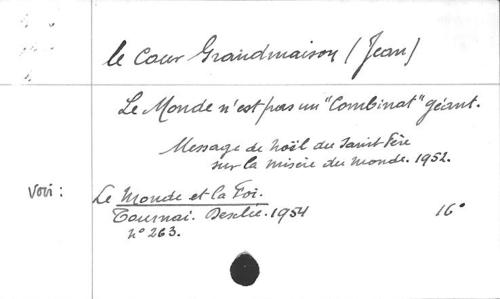 le Cour Grandmaison (Jean)
Le Monde n'est pas un "Combinat" géant.
Message de Noël du Saint Père
sur la misère du monde. 1952.
Voir : Le Monde et la Foi.
Tournai. Desclée. 1954 16°
n° 263.